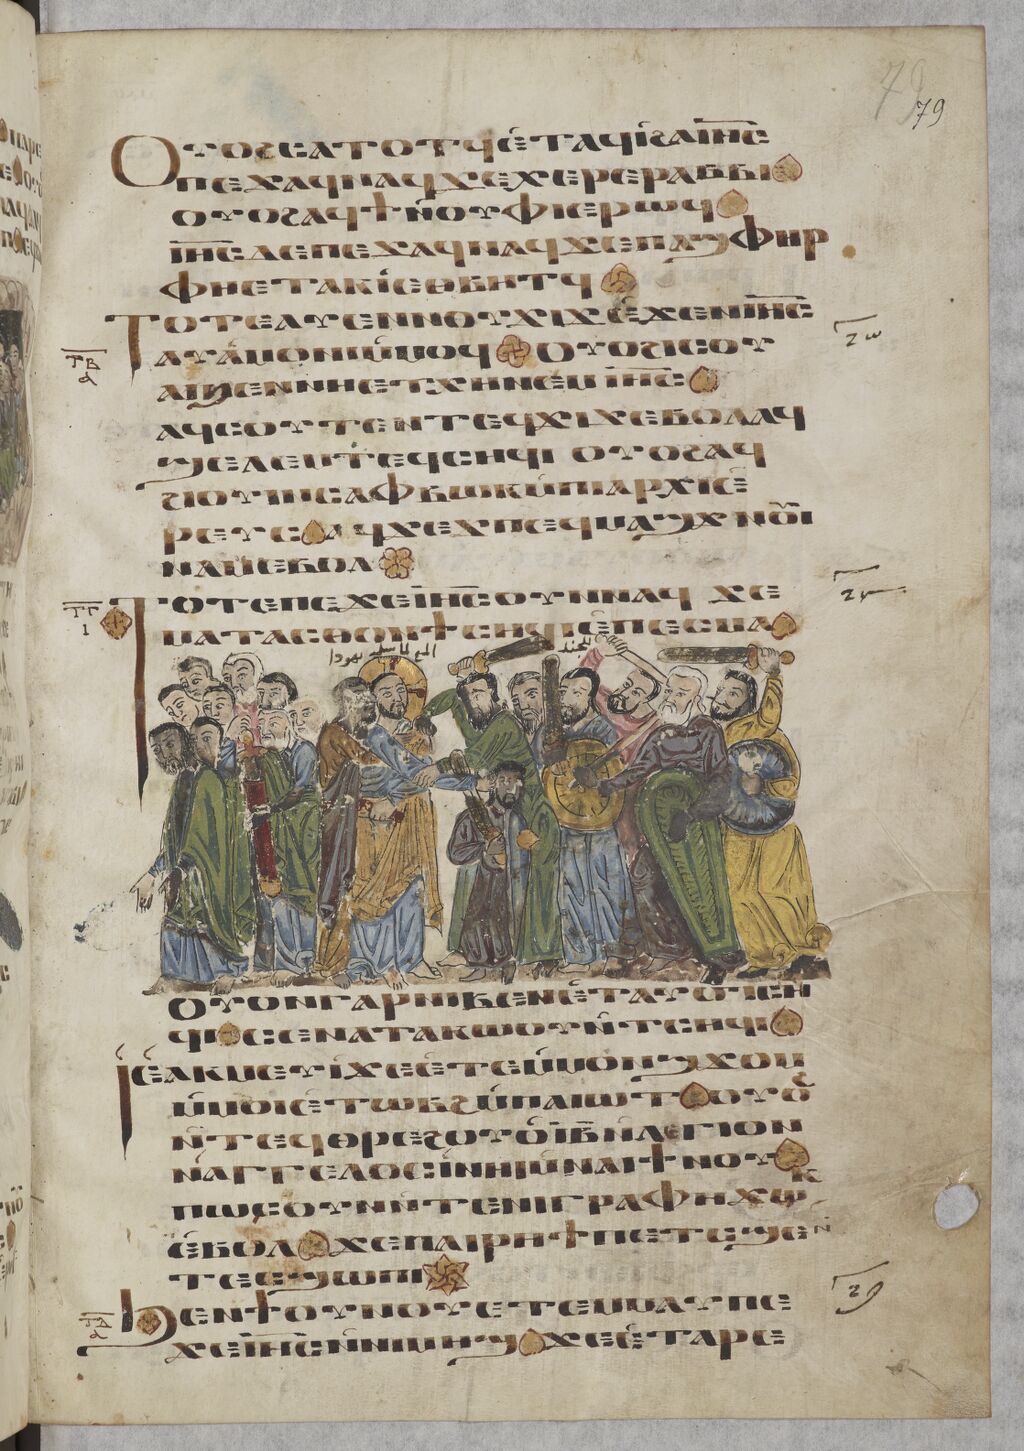 79
79
Ⲟⲩⲟϩ ⲥⲁⲧⲟⲧϥ ⲉ̀ⲧⲁϥⲓ ϩⲁ ⲓⲏ̅ⲥ̅
ⲡⲉϫⲁϥ ⲛⲁϥ ϫⲉ ⲭⲉⲣⲉ ⲣⲁⲃⲃⲓ
ⲟⲩⲟϩ ⲁϥϯ ⲛ̀ⲟⲩⲫⲓ ⲉⲣⲱϥ
ⲓⲏ̅ⲥ̅ ⲇⲉ ⲡⲉϫⲁϥ ⲛⲁϥ ϫⲉ ⲡⲁϣⲫⲏⲣ
ⲫⲏ ⲉⲧⲁⲕⲓ̀ ⲉⲑⲃⲏⲧϥ
Ⲧⲟⲧⲉ ⲁⲩⲉⲛ ⲛⲟⲩϫⲓϫ ⲉ̀ϫⲉⲛ ⲓⲏ̅ⲥ̅
ⲁⲩⲁ̀ⲙⲟⲛⲓ ⲙ̀ⲙⲟϥ ⲟⲩⲟϩ ⲓⲥ ⲟⲩ
ⲁⲓ ϧⲉⲛ ⲛⲏ ⲉⲧⲭⲏ ⲛⲉⲙ ⲓⲏ̅ⲥ̅
ⲁϥⲥⲟⲩⲧⲉⲛ ⲧⲉϥϫⲓϫ ⲉⲃⲟⲗ ⲁϥ
ϣⲉⲗⲉⲙ ⲧⲉϥⲥⲏϥⲓ ⲟⲩⲟϩ ⲁϥ
ϩⲓⲟⲩⲓ ⲛⲥⲁ ⲫⲃⲱⲕ ⲙ̀ⲡⲓⲁⲣⲭⲓⲉ̀
ⲣⲉⲩⲥ ⲁϥϫⲉϫ ⲡⲉϥⲙⲁϣϫ ⲛⲟⲩⲓ
ⲛⲁⲙ ⲉⲃⲟⲗ
Ⲧⲟⲧⲉ ⲡⲉϫⲉ ⲓⲏ̅ⲥ̅ ⲟⲩⲛ ⲛⲁϥ ϫⲉ
ⲙⲁⲧⲁⲥⲑⲟ ⲛϯⲥⲏϥⲓ ⲉ̀ⲡⲉⲥⲙⲁ
يهودا
الجند
ⲟⲩⲟⲛ ⲅⲁⲣ ⲛⲓⲃⲉⲛ ⲉ̀ⲧⲁⲩϭⲓ ⲥⲏ
ϥⲓ ⲥⲉⲛⲁⲧⲁⲕⲱⲟⲩ ⲛ̀ⲧⲥⲏϥⲓ
Ⲓⲉ̀ ⲁⲕⲙⲉⲩⲓ̀ ϫⲉ ⲉ̀ⲧⲉ ⲙ̀ⲙⲟⲛ ϣϫⲟⲙ
ⲙ̀ⲙⲟⲓ ⲉ̀ⲧⲱⲃϩ ⲙ̀ⲡⲁⲓⲱⲧ ⲟⲩⲟϩ
ⲛ̀ⲧⲉϥⲑⲣⲉ ϩⲟⲩⲟ̀ ⲓ̅ⲃ̅ ⲛ̀ⲗⲉⲅⲓⲱⲛ
ⲛ̀ⲁⲅⲅⲉⲗⲟⲥ ⲓ̀ ⲛⲏⲓ ⲙ̀ⲛⲁⲓ ϯⲛⲟⲩ
ⲡⲱⲥ ⲟⲩⲛ ⲛ̀ⲧⲉ ⲛⲓⲅⲣⲁⲫⲏ ϫⲱⲕ
ⲉ̀ⲃⲟⲗ ϫⲉ ⲡⲁⲓⲣⲏϯ ⲡⲉⲧⲥϣⲉⲛ
ⲧⲉⲥϣⲱⲡⲓ
Ϧⲉⲛ ϯⲟⲩⲛⲟⲩ ⲉⲧⲉⲙⲙⲁⲩ ⲡⲉ
ϫⲉ ⲓⲏ̅ⲥ̅ ⲛ̀ⲛⲓⲙⲏϣ ϫⲉ ⲉ̀ⲧⲁⲣⲉ